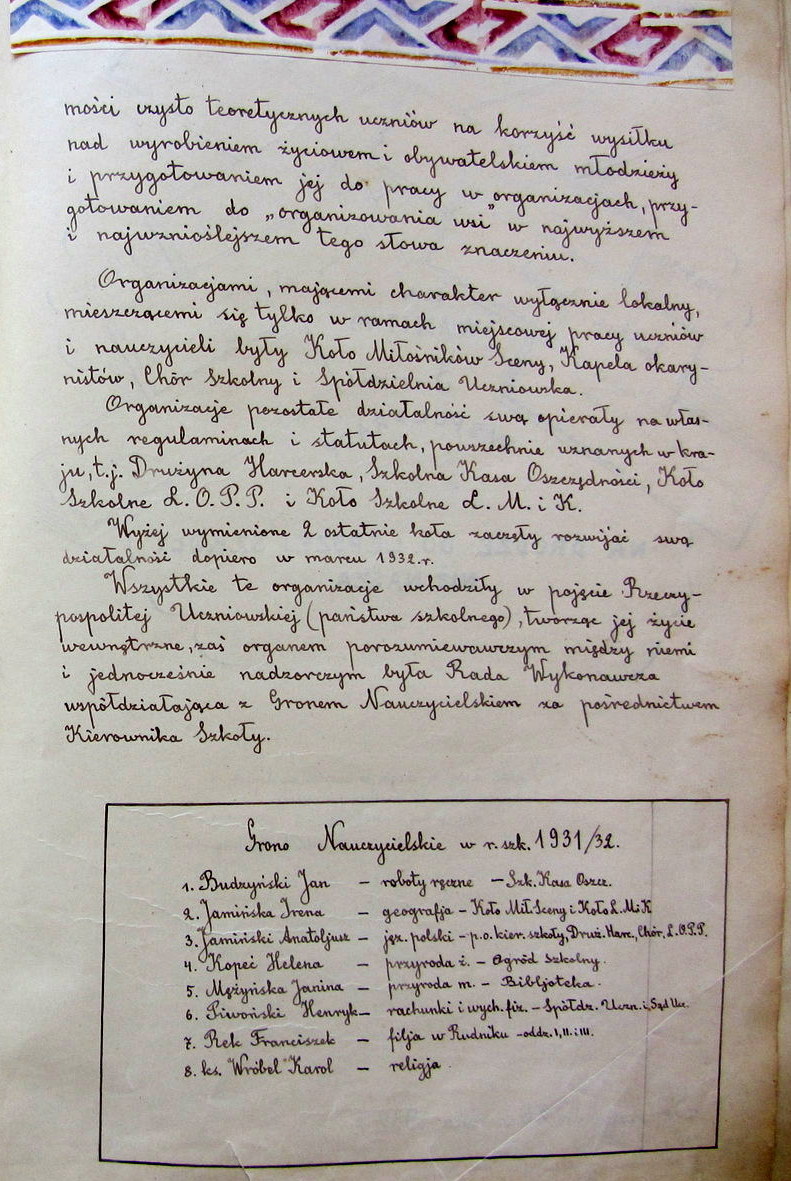 mości czysto teoretycznych uczniów na korzyść wysiłku
nad wyrobieniem życiowem i obywatelskiem młodzieży
i przygotowaniem jej do pracy w organizacjach, przy-
gotowaniem do „organizowania wsi” w najwyższem
i najwznioślejszem tego słowa znaczeniu.
Organizacjami, mającemi charakter wyłącznie lokalny,
mieszczącemi się tylko w ramach miejscowej pracy uczniów
i nauczycieli były Koło Miłośników Sceny, Kapela okary-
nistów, Chór Szkolny i Spółdzielnia Uczniowska.
Organizacje pozostałe działalność swą opierały na włas-
nych regulaminach i statutach, powszechnie uznanych w kra-
ju, t.j. Drużyna Harcerska, Szkolna Kasa Oszczędności, Koło
Szkolne L.O.P.P. i Koło Szkolne L.M. i K.
Wyżej wymienione 2 ostatnie koła zaczęły rozwijać swą
działalność dopiero w marcu 1932.r.
Wszystkie te organizacje wchodziły w pojęcie Rzeczy-
pospolitej Uczniowskiej (państwa szkolnego), tworząc jej życie
wewnętrzne, zaś organem porozumiewawczym między niemi
i jednocześnie nadzorczym była Rada Wykonawcza
współdziałająca z Gronem Nauczycielskiem za pośrednictwem
Kierownika Szkoły.
Grono Nauczycielskie w r. szk. 1931/32.
1. Budzyński Jan — roboty ręczne — Szk. Kasa Oszcz.
2. Jamińska Irena — geografja — Koło Mił. Sceny i Koło L.M.i K
3. Jamiński Anatoljusz — jęz. polski — p.o. kier. szkoły, Druż. Harc., Chór, L.O.P.P.
4. Kopeć Helena — przyroda ż. — Ogród Szkolny.
5. Mężyńska Janina — przyroda m. — Bibljoteka.
6. Piwoński Henryk — rachunki i wych. fiz. — Spółdz. Uczn. i Sąd Ucz.
7. Rek Franciszek — filja w Rudniku — oddz. I, II. i III.
8. ks. Wróbel Karol — religja.